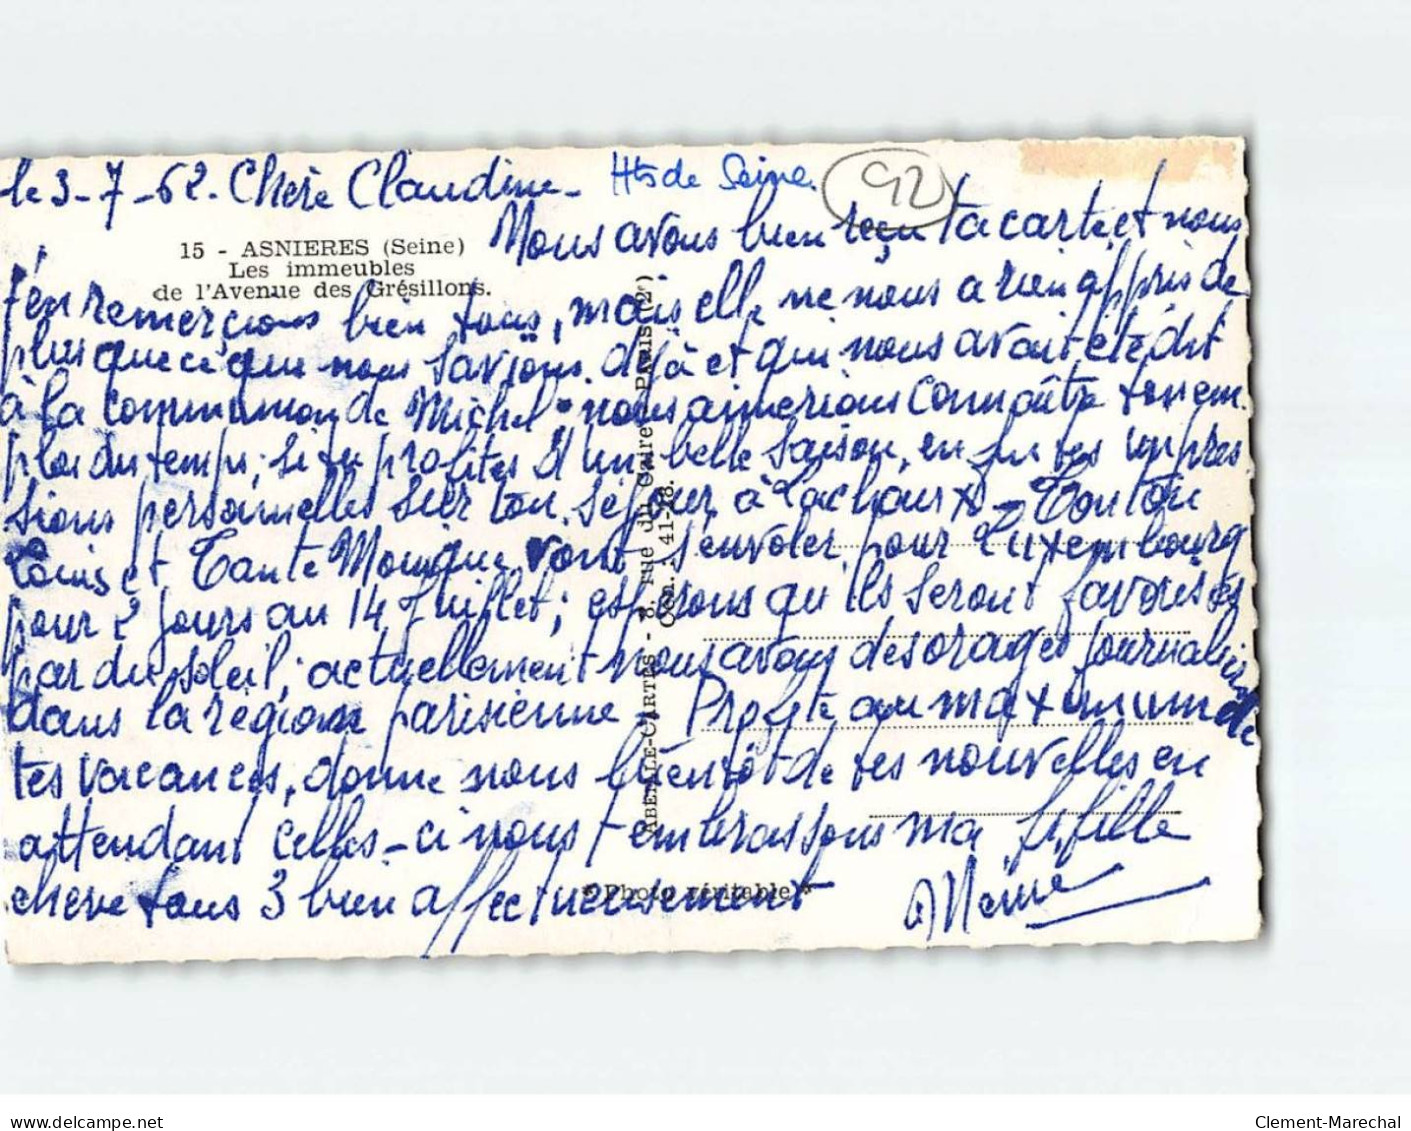 le 3-7-62. Chère Claudine_ Hts de Seine. 92
Nous avons bien reçu ta carte et nous
15 - ASNIERES (Seine)
Les immeubles
de l'Avenue des Grésillons.
t'en remercions bien tous, mais elle ne nous a rien appris de
plus que ce que nous savions déjà et qui nous avait été dit
à la communion de Michel, nous aimerions connaître ton em
ploi du temps, si tu profites d'un belle saison, enfin tes impres
sions personnelles sur ton séjour à Lachaux - Tonton
Louis et Tante Monique vont s'envoler pour Luxembourg
pour 2 jours au 14 Juillet; espérons qu'ils seront favorisés
par du soleil; actuellement nous avons des orages journaliers
dans la région parisienne - Profite au maximum de
tes vacances, donne nous bientôt de tes nouvelles en
attendant celles-ci nous t'embrassons ma fifille
chère tous 3 bien affectueusement
ABEILLE-CARTES - 8, rue du Caire - PARIS (2e)
Cen. : 41-28.
* Photo véritable *
delcampe.net
Clement-Marechal